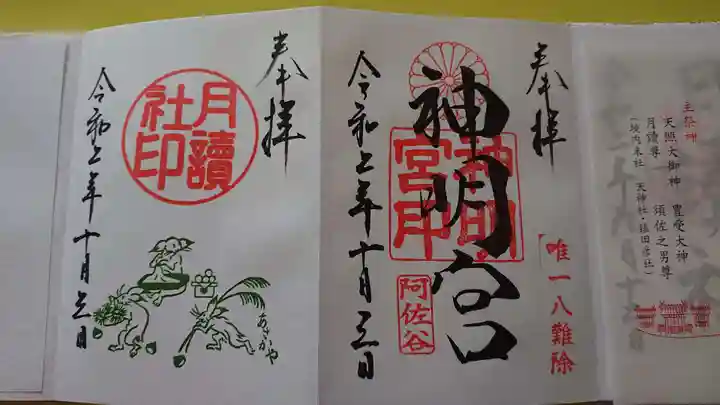 主祭神
天照大御神 豊受大神
月讀尊 須佐之男尊
(境内末社 天神社・猿田彦社)
奉拝
「唯一八難除」
神明宮
神明宮印
阿佐谷
令和 年十月三日
奉拝
月讀社印
あさがや
令和 年十月三日